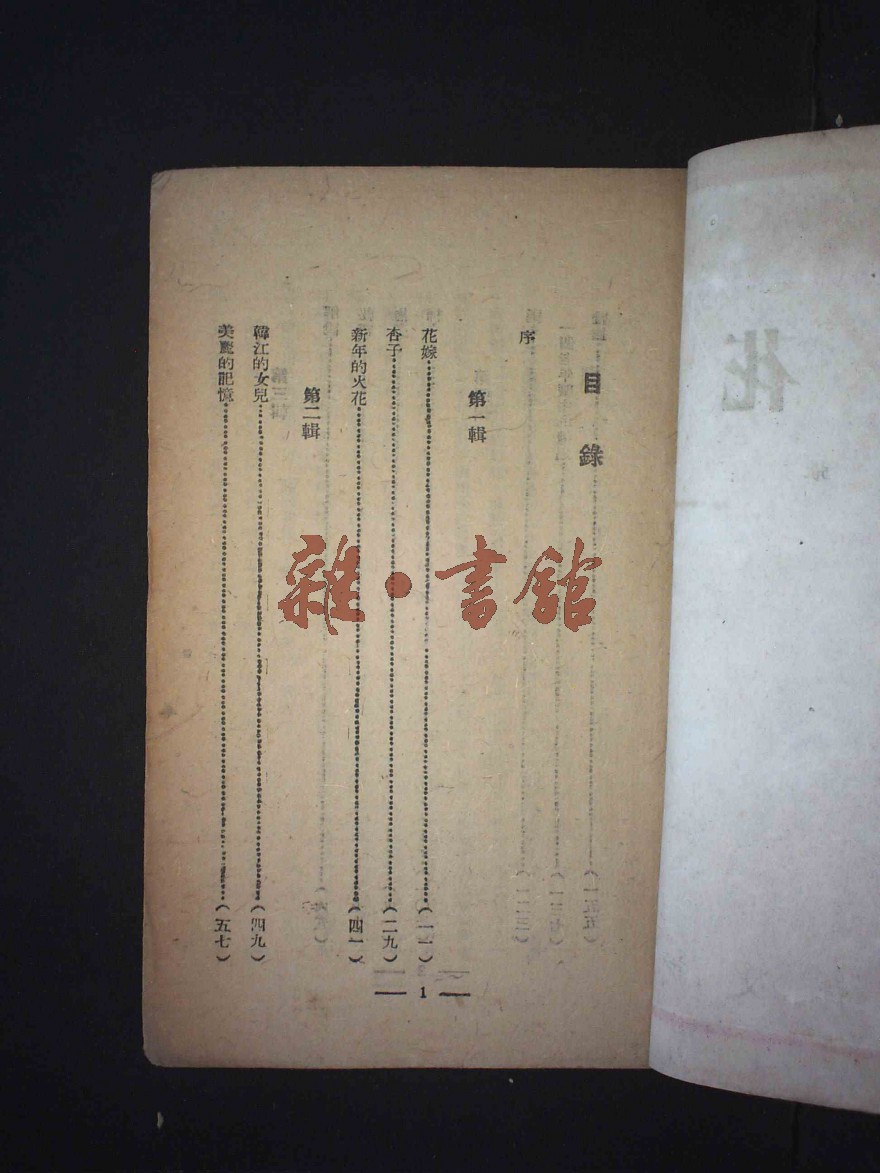 目錄
序
第一輯
花嫁（一一）
杏子（二九）
新年的火花（四一）
第二輯
韓江的女兒（四九）
美麗的記憶（五七）
1
雜·書館